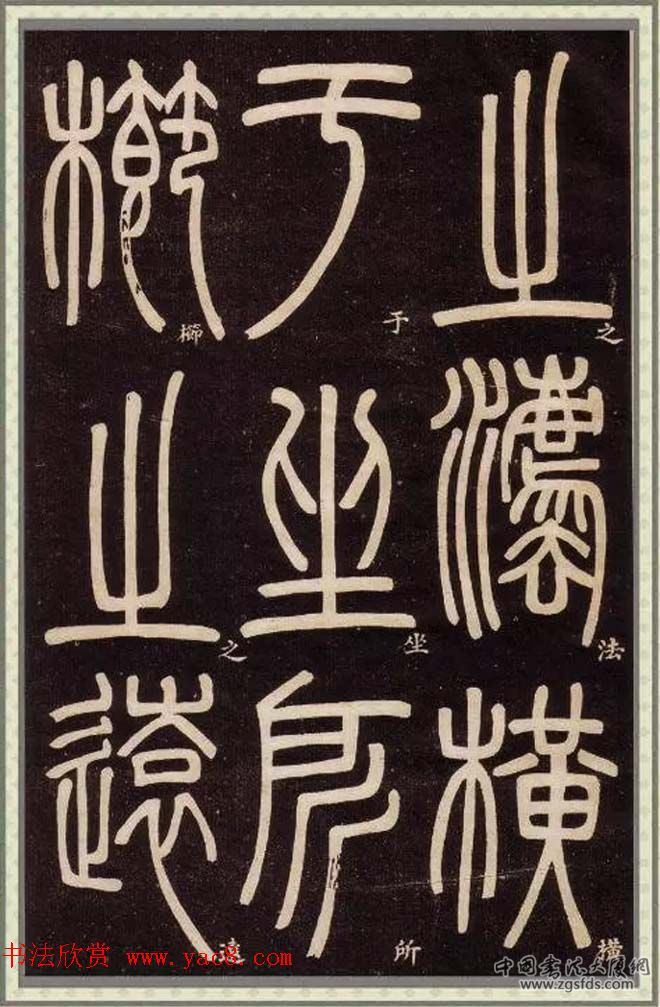 之灋橫
之法橫
于坐所
于坐所
櫛之遠
櫛之遠
书法欣赏 www.yac8.com
中国书法
www.zgsfds.com